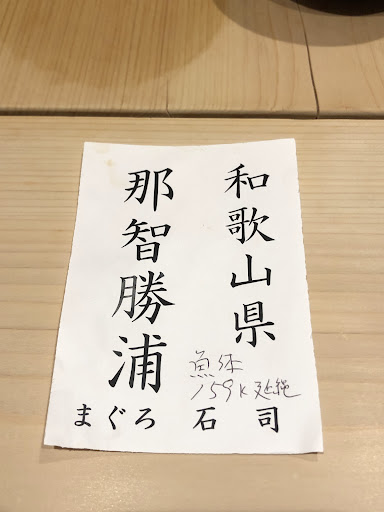 和歌山県
那智勝浦
魚体
159K 延縄
まぐろ 石司